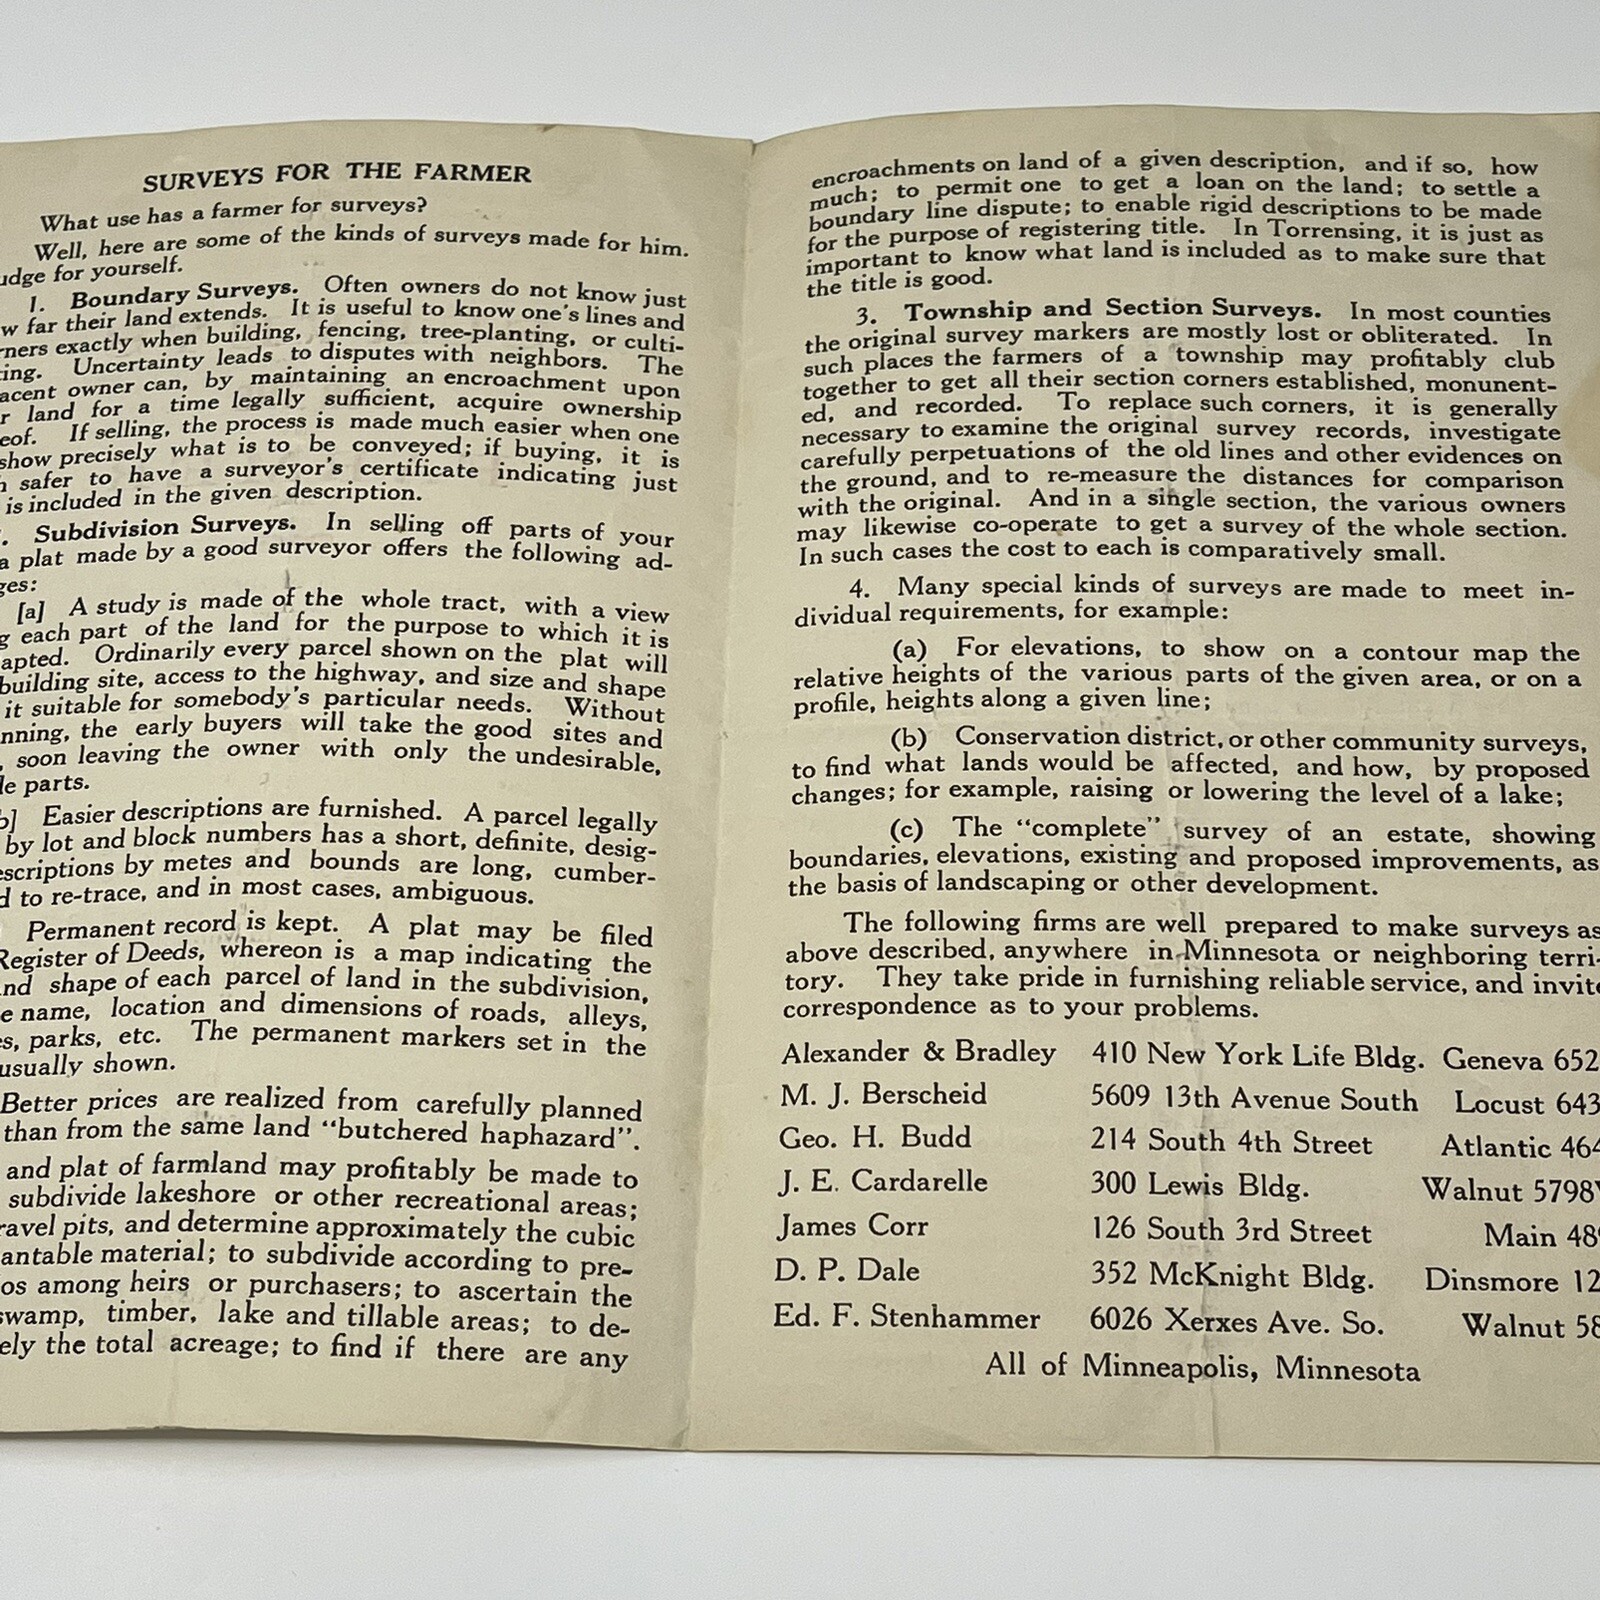 SURVEYS FOR THE FARMER
What use has a farmer for surveys?
Well, here are some of the kinds of surveys made for him.
udge for yourself.
1. Boundary Surveys. Often owners do not know just
w far their land extends. It is useful to know one's lines and
rners exactly when building, fencing, tree-planting, or culti-
ting. Uncertainty leads to disputes with neighbors. The
acent owner can, by maintaining an encroachment upon
r land for a time legally sufficient, acquire ownership
eof. If selling, the process is made much easier when one
show precisely what is to be conveyed; if buying, it is
h safer to have a surveyor's certificate indicating just
is included in the given description.
. Subdivision Surveys. In selling off parts of your
a plat made by a good surveyor offers the following ad-
ges:
[a] A study is made of the whole tract, with a view
g each part of the land for the purpose to which it is
apted. Ordinarily every parcel shown on the plat will
building site, access to the highway, and size and shape
it suitable for somebody's particular needs. Without
nning, the early buyers will take the good sites and
, soon leaving the owner with only the undesirable,
le parts.
b] Easier descriptions are furnished. A parcel legally
by lot and block numbers has a short, definite, desig-
escriptions by metes and bounds are long, cumber-
d to re-trace, and in most cases, ambiguous.
Permanent record is kept. A plat may be filed
Register of Deeds, whereon is a map indicating the
nd shape of each parcel of land in the subdivision,
e name, location and dimensions of roads, alleys,
es, parks, etc. The permanent markers set in the
usually shown.
Better prices are realized from carefully planned
than from the same land "butchered haphazard".
and plat of farmland may profitably be made to
subdivide lakeshore or other recreational areas;
ravel pits, and determine approximately the cubic
antable material; to subdivide according to pre-
os among heirs or purchasers; to ascertain the
swamp, timber, lake and tillable areas; to de-
ely the total acreage; to find if there are any
encroachments on land of a given description, and if so, how
much; to permit one to get a loan on the land; to settle a
boundary line dispute; to enable rigid descriptions to be made
for the purpose of registering title. In Torrensing, it is just as
important to know what land is included as to make sure that
the title is good.
3. Township and Section Surveys. In most counties
the original survey markers are mostly lost or obliterated. In
such places the farmers of a township may profitably club
together to get all their section corners established, monunent-
ed, and recorded. To replace such corners, it is generally
necessary to examine the original survey records, investigate
carefully perpetuations of the old lines and other evidences on
the ground, and to re-measure the distances for comparison
with the original. And in a single section, the various owners
may likewise co-operate to get a survey of the whole section.
In such cases the cost to each is comparatively small.
4. Many special kinds of surveys are made to meet in-
dividual requirements, for example:
(a) For elevations, to show on a contour map the
relative heights of the various parts of the given area, or on a
profile, heights along a given line;
(b) Conservation district, or other community surveys,
to find what lands would be affected, and how, by proposed
changes; for example, raising or lowering the level of a lake;
(c) The "complete" survey of an estate, showing
boundaries, elevations, existing and proposed improvements, as
the basis of landscaping or other development.
The following firms are well prepared to make surveys as
above described, anywhere in Minnesota or neighboring terri-
tory. They take pride in furnishing reliable service, and invite
correspondence as to your problems.
Alexander & Bradley 410 New York Life Bldg. Geneva 652
M. J. Berscheid 5609 13th Avenue South Locust 643
Geo. H. Budd 214 South 4th Street Atlantic 464
J. E. Cardarelle 300 Lewis Bldg. Walnut 5798
James Corr 126 South 3rd Street Main 48
D. P. Dale 352 McKnight Bldg. Dinsmore 12
Ed. F. Stenhammer 6026 Xerxes Ave. So. Walnut 58
All of Minneapolis, Minnesota